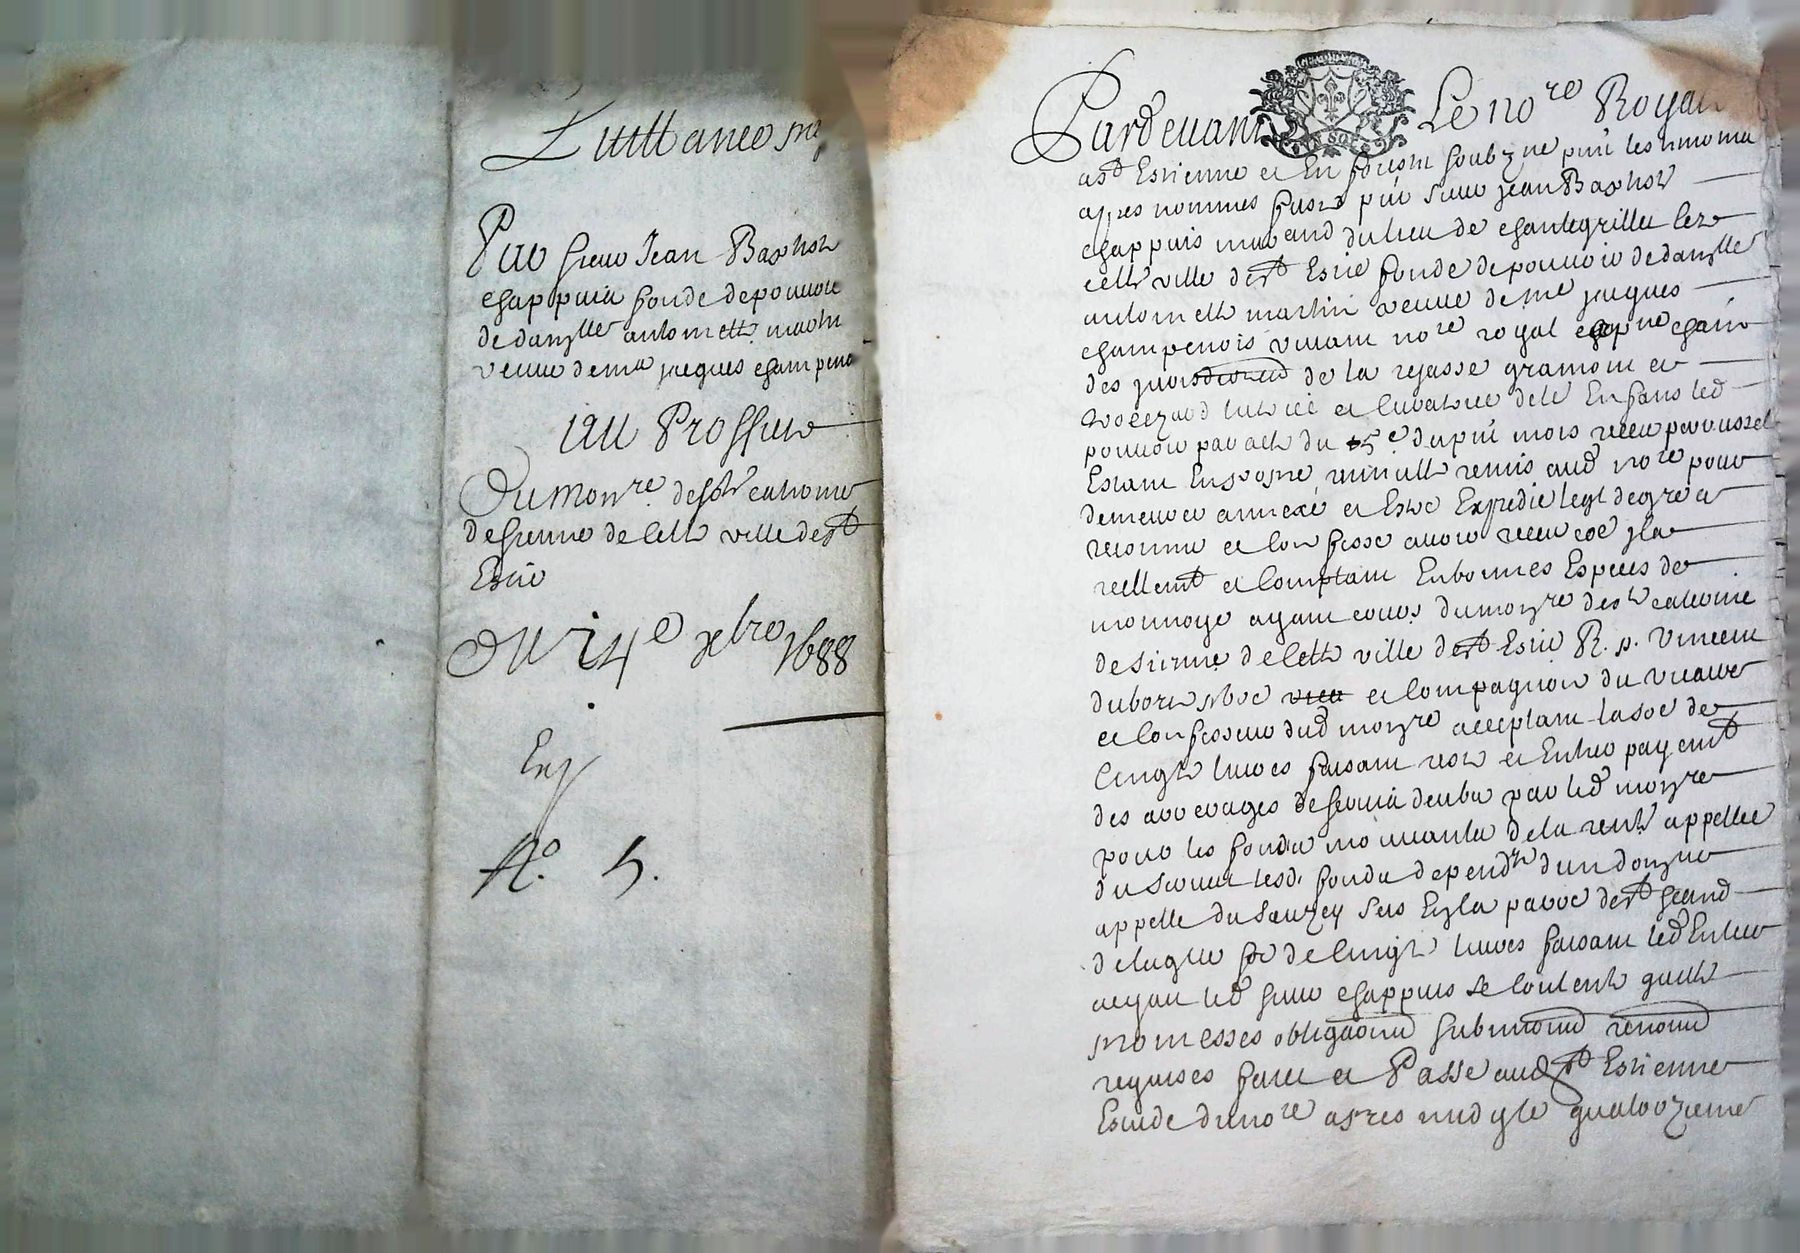 Quittance
Par sieur Jean Baptiste
chappuis fondé de pouvoir
de dam^lle antoinette martin
veuve de me jacques champenois
Au Proffit
Du mon^re de s^te catherine
de sienne de cette ville de st
Estie
Du 14^e xbre 1688
Exp
N°. 5.
Pardevant Le no^re Royal
a s^t Estienne et En forestz soubzne p^nt les tesmoins
apres nommes furent p^nt sieur jean Baptiste
chappuis marchand du lieu de chantegrillet lez
cette ville de s^t Estie fondé de pouvoir de dam^lle
antoinette martin veuve de me jacques
champenois vivant no^re royal
des jurisdictions de la
tutrice et curatrice de ses Enfans led
pouvoir par acte du 5^e du p^nt mois receu par
Estant minutte remis aud no^re pour
demeurer annexé et Estre Expedié leql de gré a
reconnu et confessé avoir receu
reellem^t et comptant En bonnes Especes de
monnoye ayant cours du mon^re de s^te catherine
de sienne de cette ville de s^t Estie R. p. Vincent
et compagnion du vicaire
et confesseur dud mon^re acceptant la soe de
cinq^te livres faisant reste et Entier payem^t
des arrerages de servis deubz par led mon^re
pour les fondz mouvantz de la rente appellée
du lesd. fondz depend^ts d'un domyne
appellé du Sauzey size En la parroe de s^t jean
de laquelle soe de cinq^te livres faisant led Entier
led sieur chappuis se contente quitte
promesses obligaons submions renons
requises fait et Passé aud s^t Estienne
Estude du no^re apres midy le quatorzieme